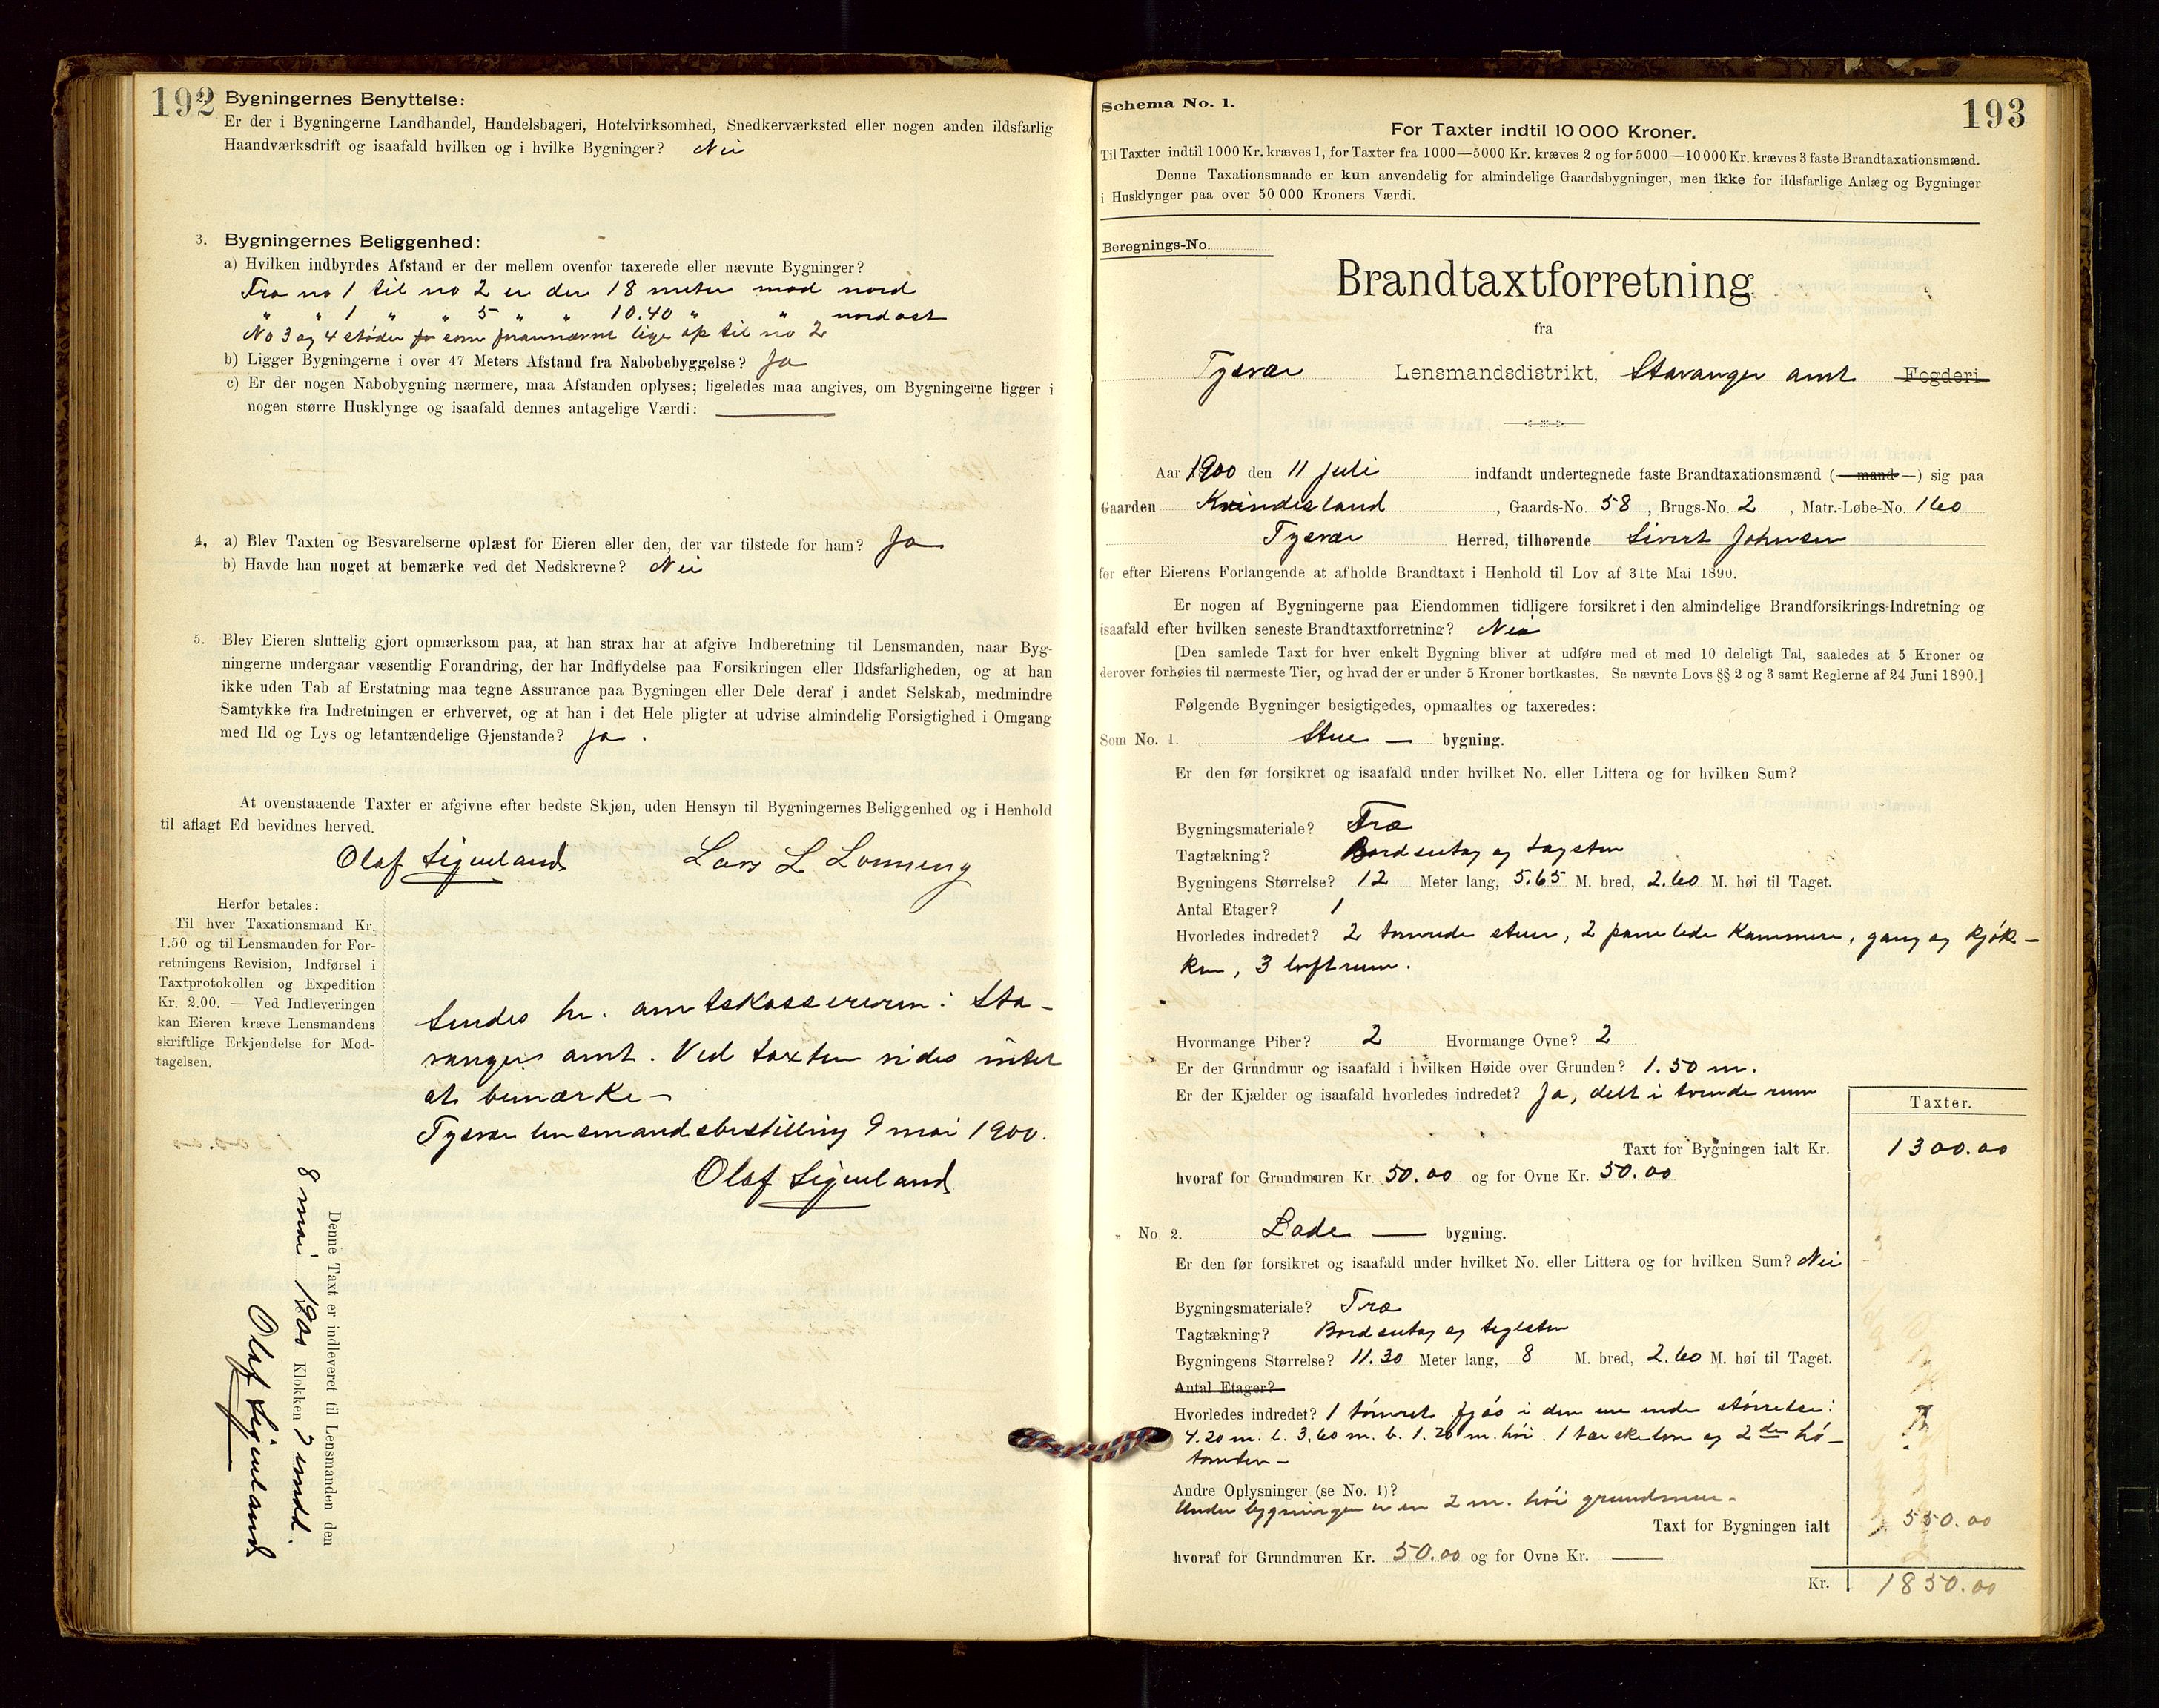 192
Bygningernes Benyttelse:
Er der i Bygningerne Landhandel, Handelsbageri, Hotelvirksomhed, Snedkerværksted eller nogen anden ildsfarlig
Haandværksdrift og isaafald hvilken og i hvilke Bygninger? Nei
3. Bygningernes Beliggenhed:
a) Hvilken indbyrdes Afstand er der mellem ovenfor taxerede eller nævnte Bygninger?
Fra no 1 til no 2 er der 18 meter mod nord
" " 1 " " 5 " " 10.40 " " nordost
No 3 og 4 støder som forannævnt lige op til no 2
b) Ligger Bygningerne i over 47 Meters Afstand fra Nabobebyggelse? Ja
c) Er der nogen Nabobygning nærmere, maa Afstanden oplyses; ligeledes maa angives, om Bygningerne ligger i
nogen større Husklynge og isaafald dennes antagelige Værdi:
4. a) Blev Taxten og Besvarelserne oplæst for Eieren eller den, der var tilstede for ham? Ja
b) Havde han noget at bemærke ved det Nedskrevne? Nei
5. Blev Eieren sluttelig gjort opmærksom paa, at han strax har at afgive Indberetning til Lensmanden, naar Byg-
ningerne undergaar væsentlig Forandring, der har Indflydelse paa Forsikringen eller Ildsfarligheden, og at han
ikke uden Tab af Erstatning maa tegne Assurance paa Bygningen eller Dele deraf i andet Selskab, medmindre
Samtykke fra Indretningen er erhvervet, og at han i det Hele pligter at udvise almindelig Forsigtighed i Omgang
med Ild og Lys og letantændelige Gjenstande? Ja.
At ovenstaaende Taxter er afgivne efter bedste Skjøn, uden Hensyn til Bygningernes Beliggenhed og i Henhold
til aflagt Ed bevidnes herved.
Olaf Lars L
Herfor betales:
Til hver Taxationsmand Kr.
1.50 og til Lensmanden for For-
retningens Revision, Indførsel i
Taxtprotokollen og Expedition
Kr. 2.00. — Ved Indleveringen
kan Eieren kræve Lensmandens
skriftlige Erkjendelse for Mod-
tagelsen.
Sendes hr. amtskassereren i Sta-
vanger amt. Ved taxten vides intet
at bemærke –
Tysvær lensmandsbestilling 9 mai 1900.
Olaf
Denne Taxt er indleveret til Lensmanden den
8 mai 1901 Klokken 7 emdd.
Olaf
193
Schema No. 1.
For Taxter indtil 10 000 Kroner.
Til Taxter indtil 1000 Kr. kræves 1, for Taxter fra 1000—5000 Kr. kræves 2 og for 5000—10 000 Kr. kræves 3 faste Brandtaxationsmænd.
Denne Taxationsmaade er kun anvendelig for almindelige Gaardsbygninger, men ikke for ildsfarlige Anlæg og Bygninger
i Husklynger paa over 50 000 Kroners Værdi.
Beregnings-No.
Brandtaxtforretning
fra
Tysvær Lensmandsdistrikt, Stavanger amt Fogderi
Aar 1900 den 11 Juli indfandt undertegnede faste Brandtaxationsmænd (—mand—) sig paa
Gaarden Kvindesland, Gaards-No. 58, Brugs-No. 2, Matr.-Løbe-No. 160
Tysvær Herred, tilhørende Sivert Johnsen
for efter Eierens Forlangende at afholde Brandtaxt i Henhold til Lov af 31te Mai 1890.
Er nogen af Bygningerne paa Eiendommen tidligere forsikret i den almindelige Brandforsikrings-Indretning og
isaafald efter hvilken seneste Brandtaxtforretning? Nei
[Den samlede Taxt for hver enkelt Bygning bliver at udføre med et med 10 deleligt Tal, saaledes at 5 Kroner og
derover forhøies til nærmeste Tier, og hvad der er under 5 Kroner bortkastes. Se nævnte Lovs §§ 2 og 3 samt Reglerne af 24 Juni 1890.]
Følgende Bygninger besigtigedes, opmaaltes og taxeredes:
Som No. 1. Stue — bygning.
Er den før forsikret og isaafald under hvilket No. eller Littera og for hvilken Sum?
Bygningsmateriale? Træ
Tagtækning? Bordsutag og tagsten
Bygningens Størrelse? 12 Meter lang, 5.65 M. bred, 2.60 M. høi til Taget.
Antal Etager? 1
Hvorledes indredet? 2 tømrede stuer, 2 panelede kammere, gang og kjøk-
ken, 3 loftrum.
Hvormange Piber? 2 Hvormange Ovne? 2
Er der Grundmur og isaafald i hvilken Høide over Grunden? 1.50 m.
Er der Kjælder og isaafald hvorledes indredet? Ja, delt i tvende rum
Taxter.
Taxt for Bygningen ialt Kr. 1300.00
hvoraf for Grundmuren Kr. 50.00 og for Ovne Kr. 50.00
" No. 2. Lade — bygning.
Er den før forsikret og isaafald under hvilket No. eller Littera og for hvilken Sum? Nei
Bygningsmateriale? Træ
Tagtækning? Bordsutag og teglsten
Bygningens Størrelse? 11.30 Meter lang, 8 M. bred, 2.60 M. høi til Taget.
Antal Etager?
Hvorledes indredet? 1 tømret fjøs i den ene ende størrelse:
4.20 m. l. 3.60 m. b. 1.20 m. høi. 1 tærskelove og 2de hø-
tomter –
Andre Oplysninger (se No. 1)?
Under bygningen er en 2 m. høi grundmur –
Taxt for Bygningen ialt 550.00
hvoraf for Grundmuren Kr. 50.00 og for Ovne Kr. —
Kr. 1850.00